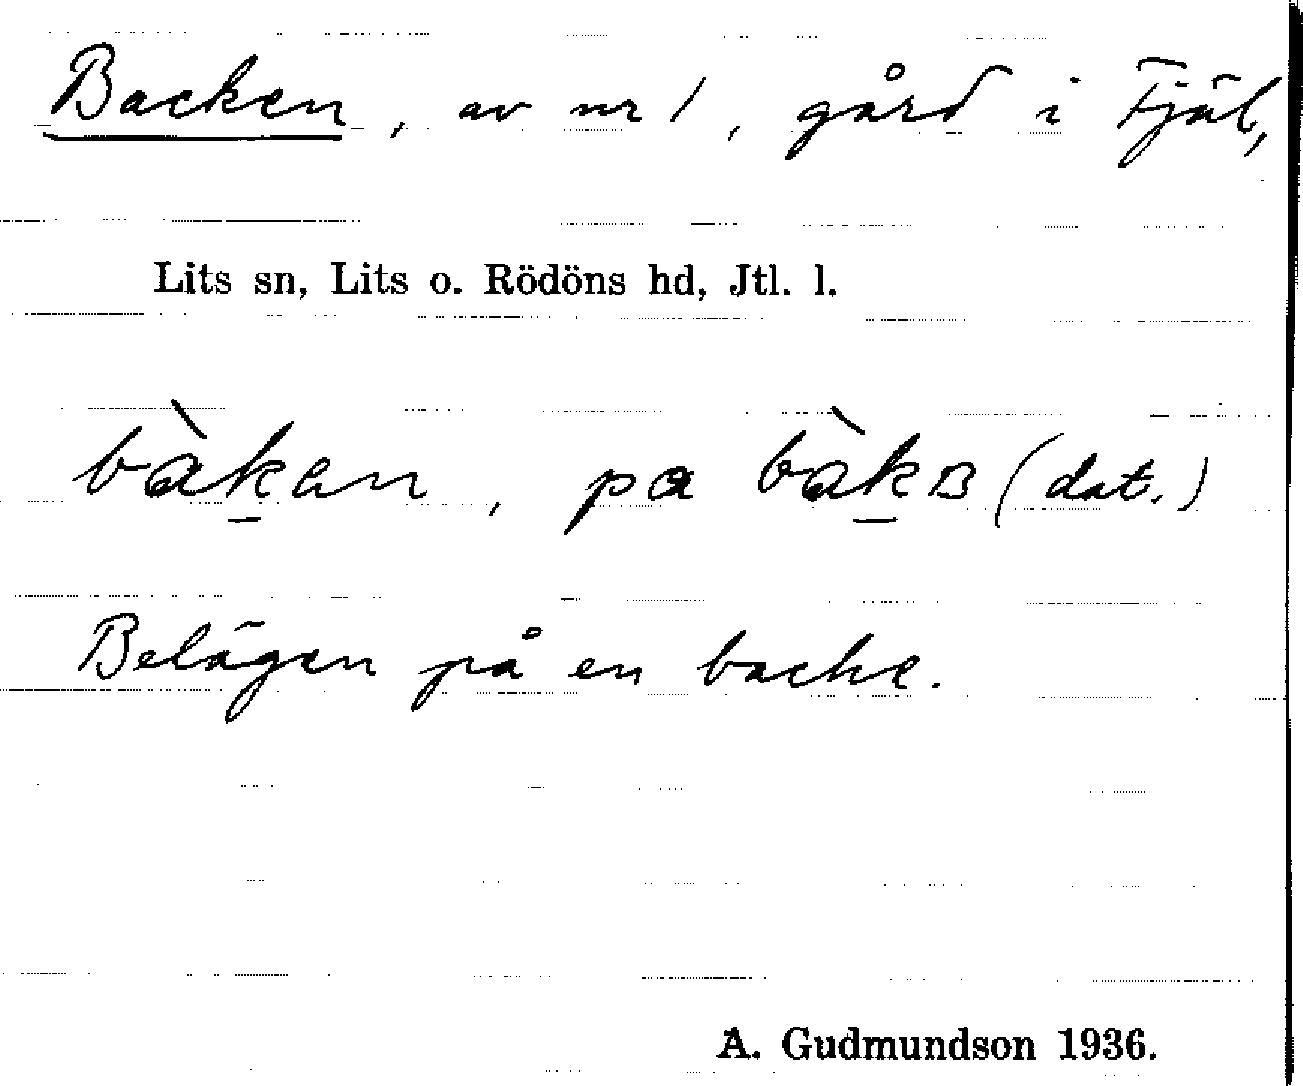 Backen, av nr 1, gård i Fjäl,
Lits sn, Lits o. Rödöns hd, Jtl. l.
bàk̠an, pa bàk̠ʙ (dat.)
Belägen på en backe.
A. Gudmundson 1936.